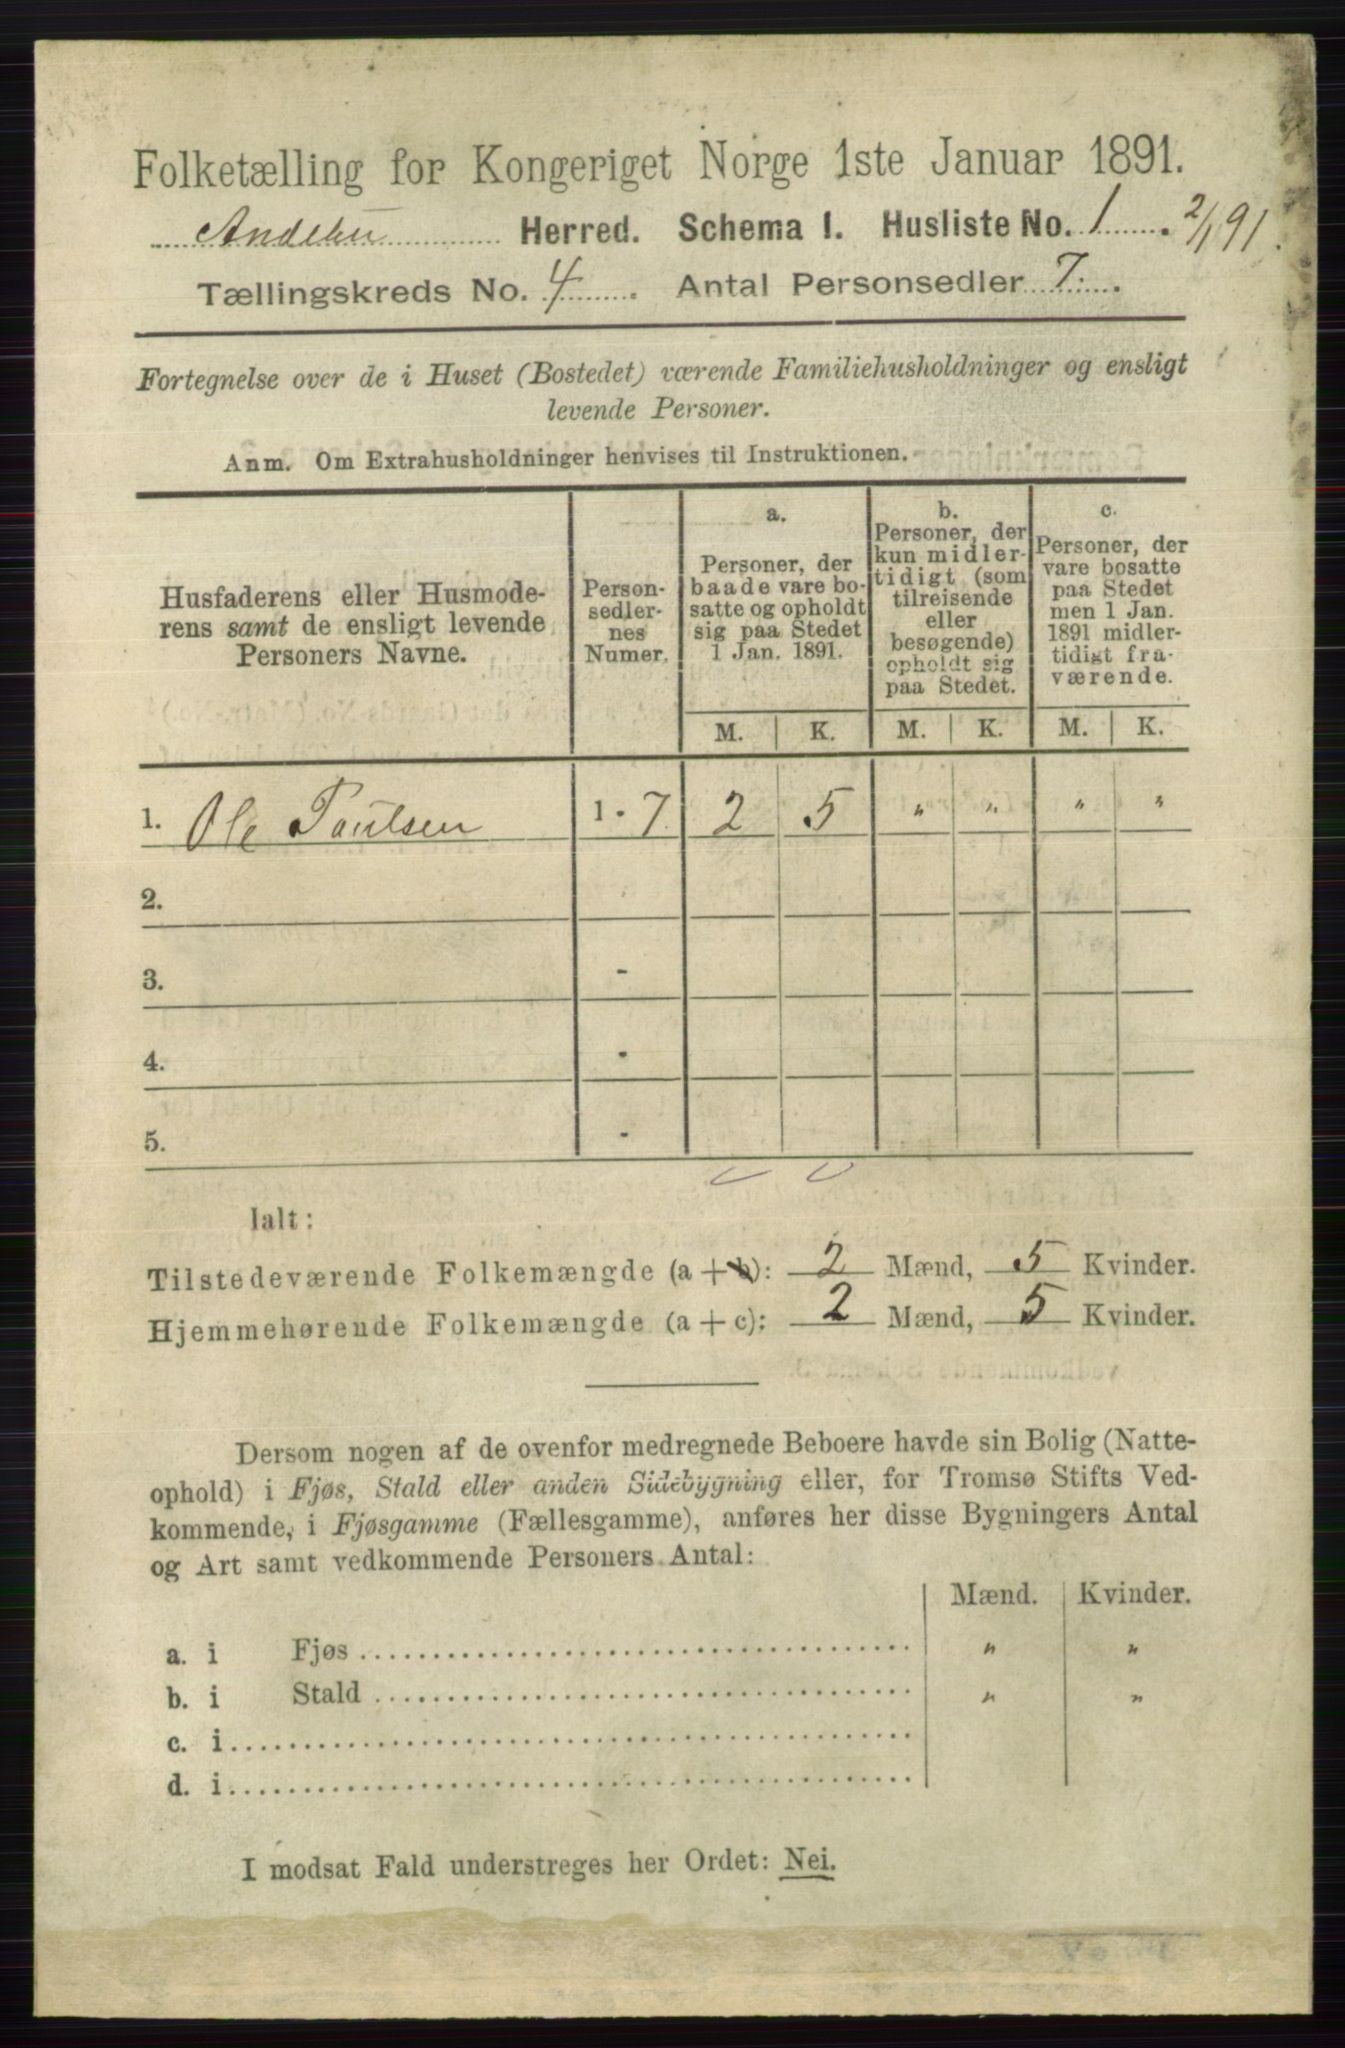 Folketælling for Kongeriget Norge 1ste Januar 1891.
Andebu Herred. Schema I. Husliste No. 1. 2/1 91.
Tællingskreds No. 4. Antal Personsedler 7.
Fortegnelse over de i Huset (Bostedet) værende Familiehusholdninger og ensligt
levende Personer.
Anm. Om Extrahusholdninger henvises til Instruktionen.
Husfaderens eller Husmode-
rens samt de ensligt levende
Personers Navne.
Person-
sedler-
nes
Numer.
a.
Personer, der
baade vare bo-
satte og opholdt
sig paa Stedet
1 Jan. 1891.
b.
Personer, der
kun midler-
tidigt (som
tilreisende
eller
besøgende)
opholdt sig
paa Stedet.
c.
Personer, der
vare bosatte
paa Stedet
men 1 Jan.
1891 midler-
tidigt fra-
værende.
M. K. M. K. M. K.
1. Ole Paulsen 1 - 7 2 5 " " " "
2.
3. -
4. -
5. -
Ialt:
Tilstedeværende Folkemængde (a + b): 2 Mænd, 5 Kvinder.
Hjemmehørende Folkemængde (a + c): 2 Mænd, 5 Kvinder.
Dersom nogen af de ovenfor medregnede Beboere havde sin Bolig (Natte-
ophold) i Fjøs, Stald eller anden Sidebygning eller, for Tromsø Stifts Ved-
kommende, i Fjøsgamme (Fællesgamme), anføres her disse Bygningers Antal
og Art samt vedkommende Personers Antal:
Mænd. Kvinder.
a. i Fjøs " "
b. i Stald " "
c. i
d. i
I modsat Fald understreges her Ordet: Nei.